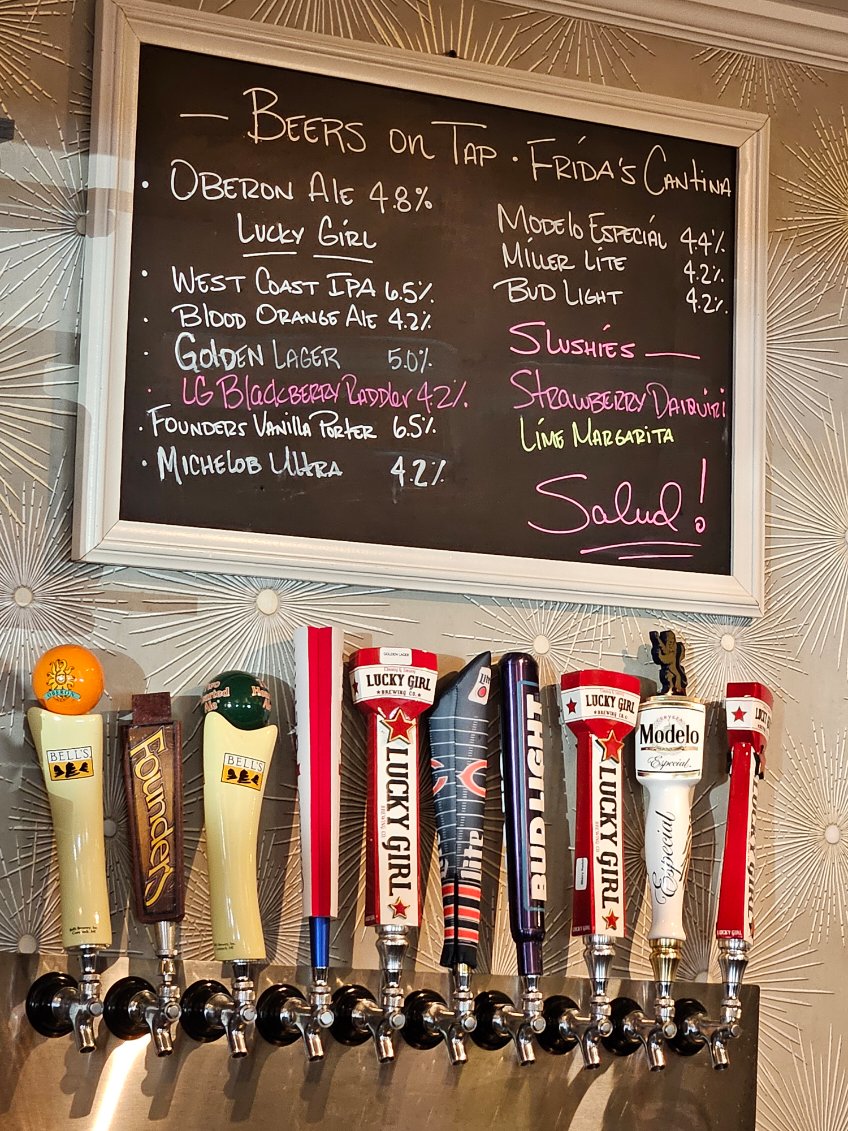 — BEERS ON TAP · FRIDA'S CANTINA
· OBERON ALE 4.8%
LUCKY GIRL
· WEST COAST IPA 6.5%
· BLOOD ORANGE ALE 4.2%
· GOLDEN LAGER 5.0%
· LG BLACKBERRY RADDLER 4.2%
· FOUNDERS VANILLA PORTER 6.5%
· MICHELOB ULTRA 4.2%
MODELO ESPECIAL 4.4%
MILLER LITE 4.2%
BUD LIGHT 4.2%
SLUSHIES —
STRAWBERRY DAIQUIRI
LIME MARGARITA
Salud!
OBERON
BELL'S
Founders
BELL'S
GOLDEN LAGER
LUCKY GIRL
BREWING CO.
LUCKY GIRL
BREWING CO.
LUCKY GIRL
lite
lite
BUD LIGHT
LUCKY GIRL
BREWING CO.
LUCKY GIRL
BREWING CO.
LUCKY GIRL
CERVEZA
Modelo
Especial
Especial
LUCKY
LUCKY GIRL